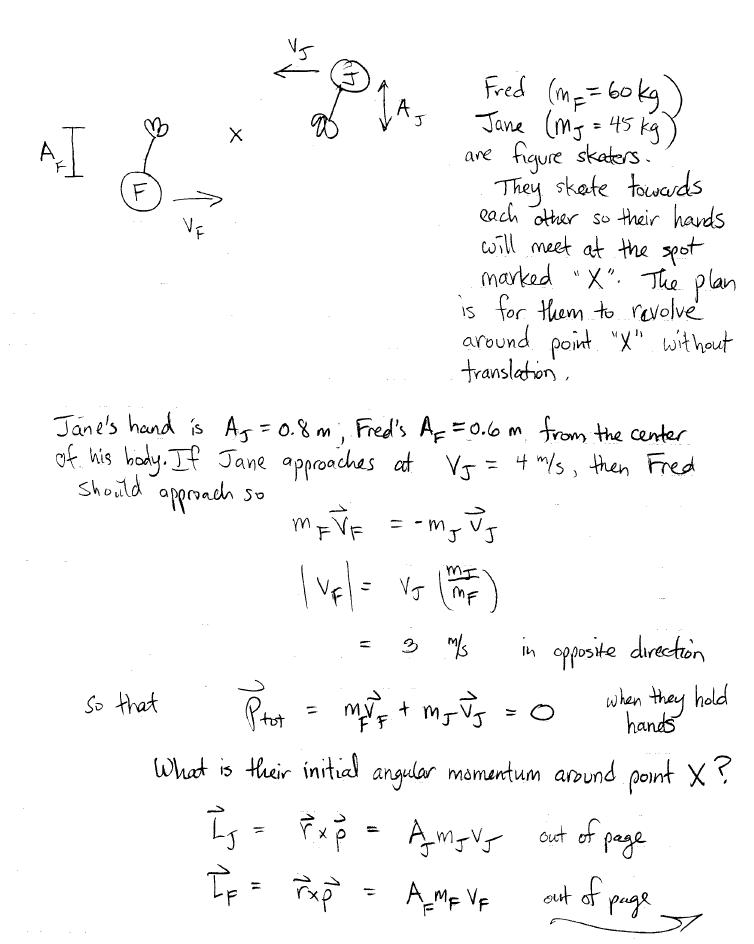 V_J
J
A_J
A_F
F
V_F
X
Fred (m_F = 60 kg)
Jane (m_J = 45 kg)
are figure skaters.
They skate towards
each other so their hands
will meet at the spot
marked "X". The plan
is for them to revolve
around point "X" without
translation.
Jane's hand is A_J = 0.8 m, Fred's A_F = 0.6 m from the center
of his body. If Jane approaches at V_J = 4 m/s, then Fred
should approach so
m_F \vec{V}_F = -m_J \vec{V}_J
|V_F| = V_J (m_J/m_F)
= 3 m/s in opposite direction
so that \vec{P}_tot = m_F \vec{V}_F + m_J \vec{V}_J = 0 when they hold
hands
What is their initial angular momentum around point X?
\vec{L}_J = \vec{r} × \vec{p} = A_J m_J V_J out of page
\vec{L}_F = \vec{r} × \vec{p} = A_F m_F V_F out of page